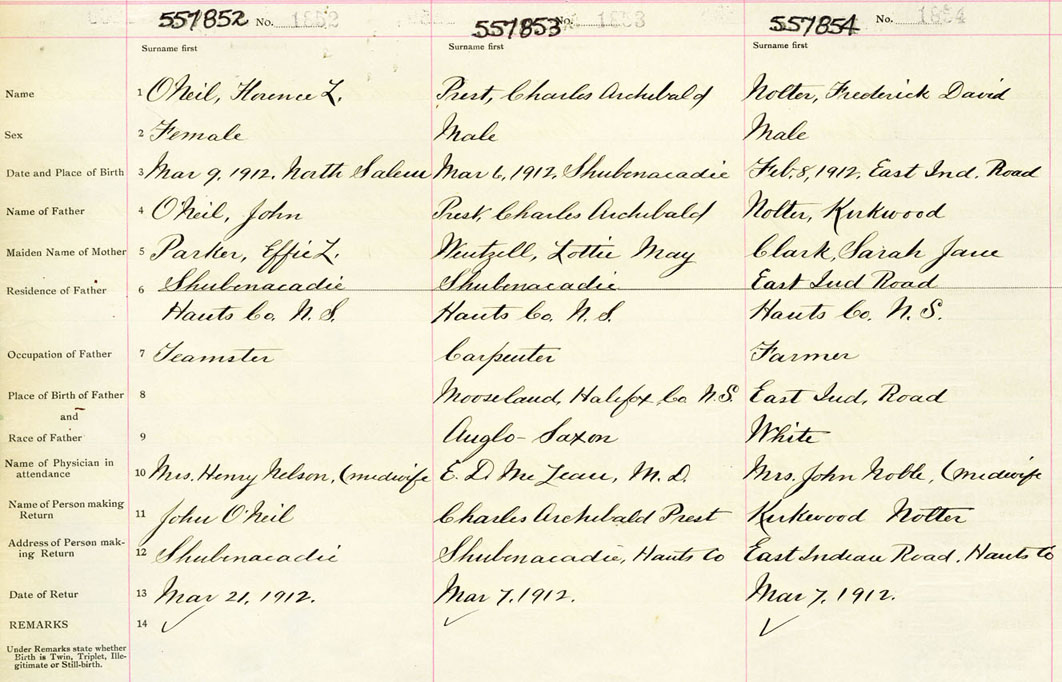 557852 No. 1852 557853 No. 1853 557854 No. 1854
Surname first Surname first Surname first
Name 1 O'Neil, Florence L. Prest, Charles Archibald Nolter, Frederick David
Sex 2 Female Male Male
Date and Place of Birth 3 Mar 9, 1912. North Salem Mar 6, 1912, Shubenacadie Feb. 8, 1912. East Ind. Road
Name of Father 4 O'Neil, John Prest, Charles Archibald Nolter, Kirkwood
Maiden Name of Mother 5 Parker, Effie L. Wentzell, Lottie May Clark, Sarah Jane
Residence of Father 6 Shubenacadie Shubenacadie East Ind Road
Hants Co. N.S. Hants Co. N.S. Hants Co. N.S.
Occupation of Father 7 Teamster Carpenter Farmer
Place of Birth of Father 8 Mooseland, Halifax Co. N.S. East Ind. Road
and
Race of Father 9 Anglo-Saxon White
Name of Physician in
attendance 10 Mrs. Henry Nelson, (midwife E. D. McLean, M.D. Mrs. John Noble, (midwife
Name of Person making
Return 11 John O'Neil Charles Archibald Prest Kirkwood Notter
Address of Person mak-
ing Return 12 Shubenacadie Shubenacadie, Hants Co East Indian Road, Hants Co
Date of Retur 13 Mar 21, 1912. Mar 7, 1912. Mar 7, 1912.
REMARKS 14
Under Remarks state whether
Birth is Twin, Triplet, Ille-
gitimate or Still-birth.